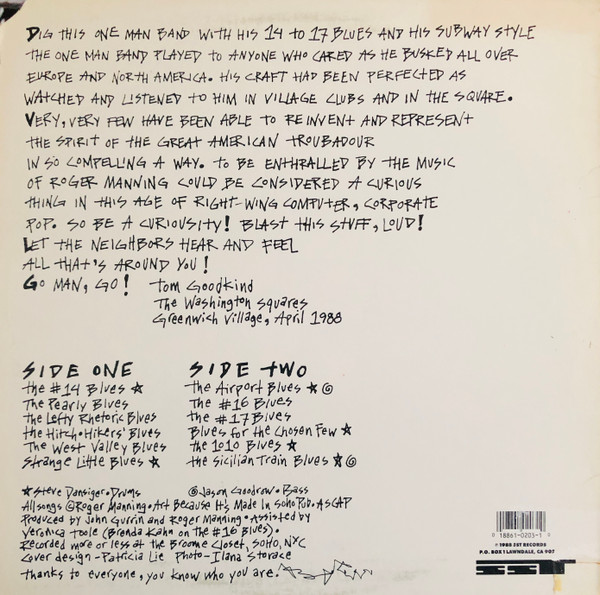 DIG THIS ONE MAN BAND WITH HIS 14 TO 17 BLUES AND HIS SUBWAY STYLE
THE ONE MAN BAND PLAYED TO ANYONE WHO CARED AS HE BUSKED ALL OVER
EUROPE AND NORTH AMERICA. HIS CRAFT HAD BEEN PERFECTED AS
WATCHED AND LISTENED TO HIM IN VILLAGE CLUBS AND IN THE SQUARE.
VERY, VERY FEW HAVE BEEN ABLE TO REINVENT AND REPRESENT
THE SPIRIT OF THE GREAT AMERICAN TROUBADOUR
IN SO COMPELLING A WAY. TO BE ENTHRALLED BY THE MUSIC
OF ROGER MANNING COULD BE CONSIDERED A CURIOUS
THING IN THIS AGE OF RIGHT-WING COMPUTER, CORPORATE
POP. SO BE A CURIOUSITY! BLAST THIS STUFF, LOUD!
LET THE NEIGHBORS HEAR AND FEEL
ALL THAT'S AROUND YOU!
GO MAN, GO! Tom Goodkind
The Washington Squares
Greenwich Village, April 1988
SIDE ONE
the #14 Blues ★
The Pearly Blues
the Lefty Rhetoric Blues
the Hitch-Hikers' Blues
The West Valley Blues
Strange Little Blues ★
SIDE TWO
the Airport Blues ★ @
The #16 Blues
the #17 Blues
Blues for the Chosen Few ★
the 1010 Blues ★
the Sicilian Train Blues ★ @
★ Steve Dansiger • Drums @ Jason Goodrow • Bass
All songs @ Roger Manning • Art Because It's Made In Soho Pub. ASCAP
Produced by John Gurrin and Roger Manning • Assisted by
Veronica Toole (Brenda Kahn on the #16 Blues).
Recorded more or less at the Broome Closet, SOHO, NYC
Cover design - Patricia Lie Photo - Ilana Storace
thanks to everyone, you know who you are.
0 18861-0203-1 6
℗ 1988 SST RECORDS
P.O. BOX 1 LAWNDALE, CA 907
SST